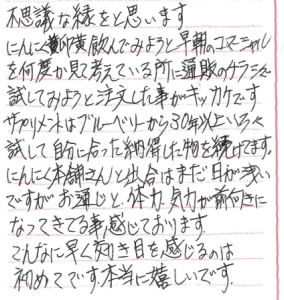 不思議な縁をと思います
にんにく卵黄飲んでみようと早朝のコマーシャル
を何度か見て考えている所に通販のチラシで
試してみようと注文した事がキッカケです
サプリメントはブルーベリーから30年以上いろいろ
試して自分に合った納得した物を続けてます。
にんにく本舗さんと出合はまだ日が浅い
ですがお通じと、体力、気力が前向きに
なってきてる事感じております。
こんなに早く効き目を感じるのは
初めてです。本当に嬉しいです。